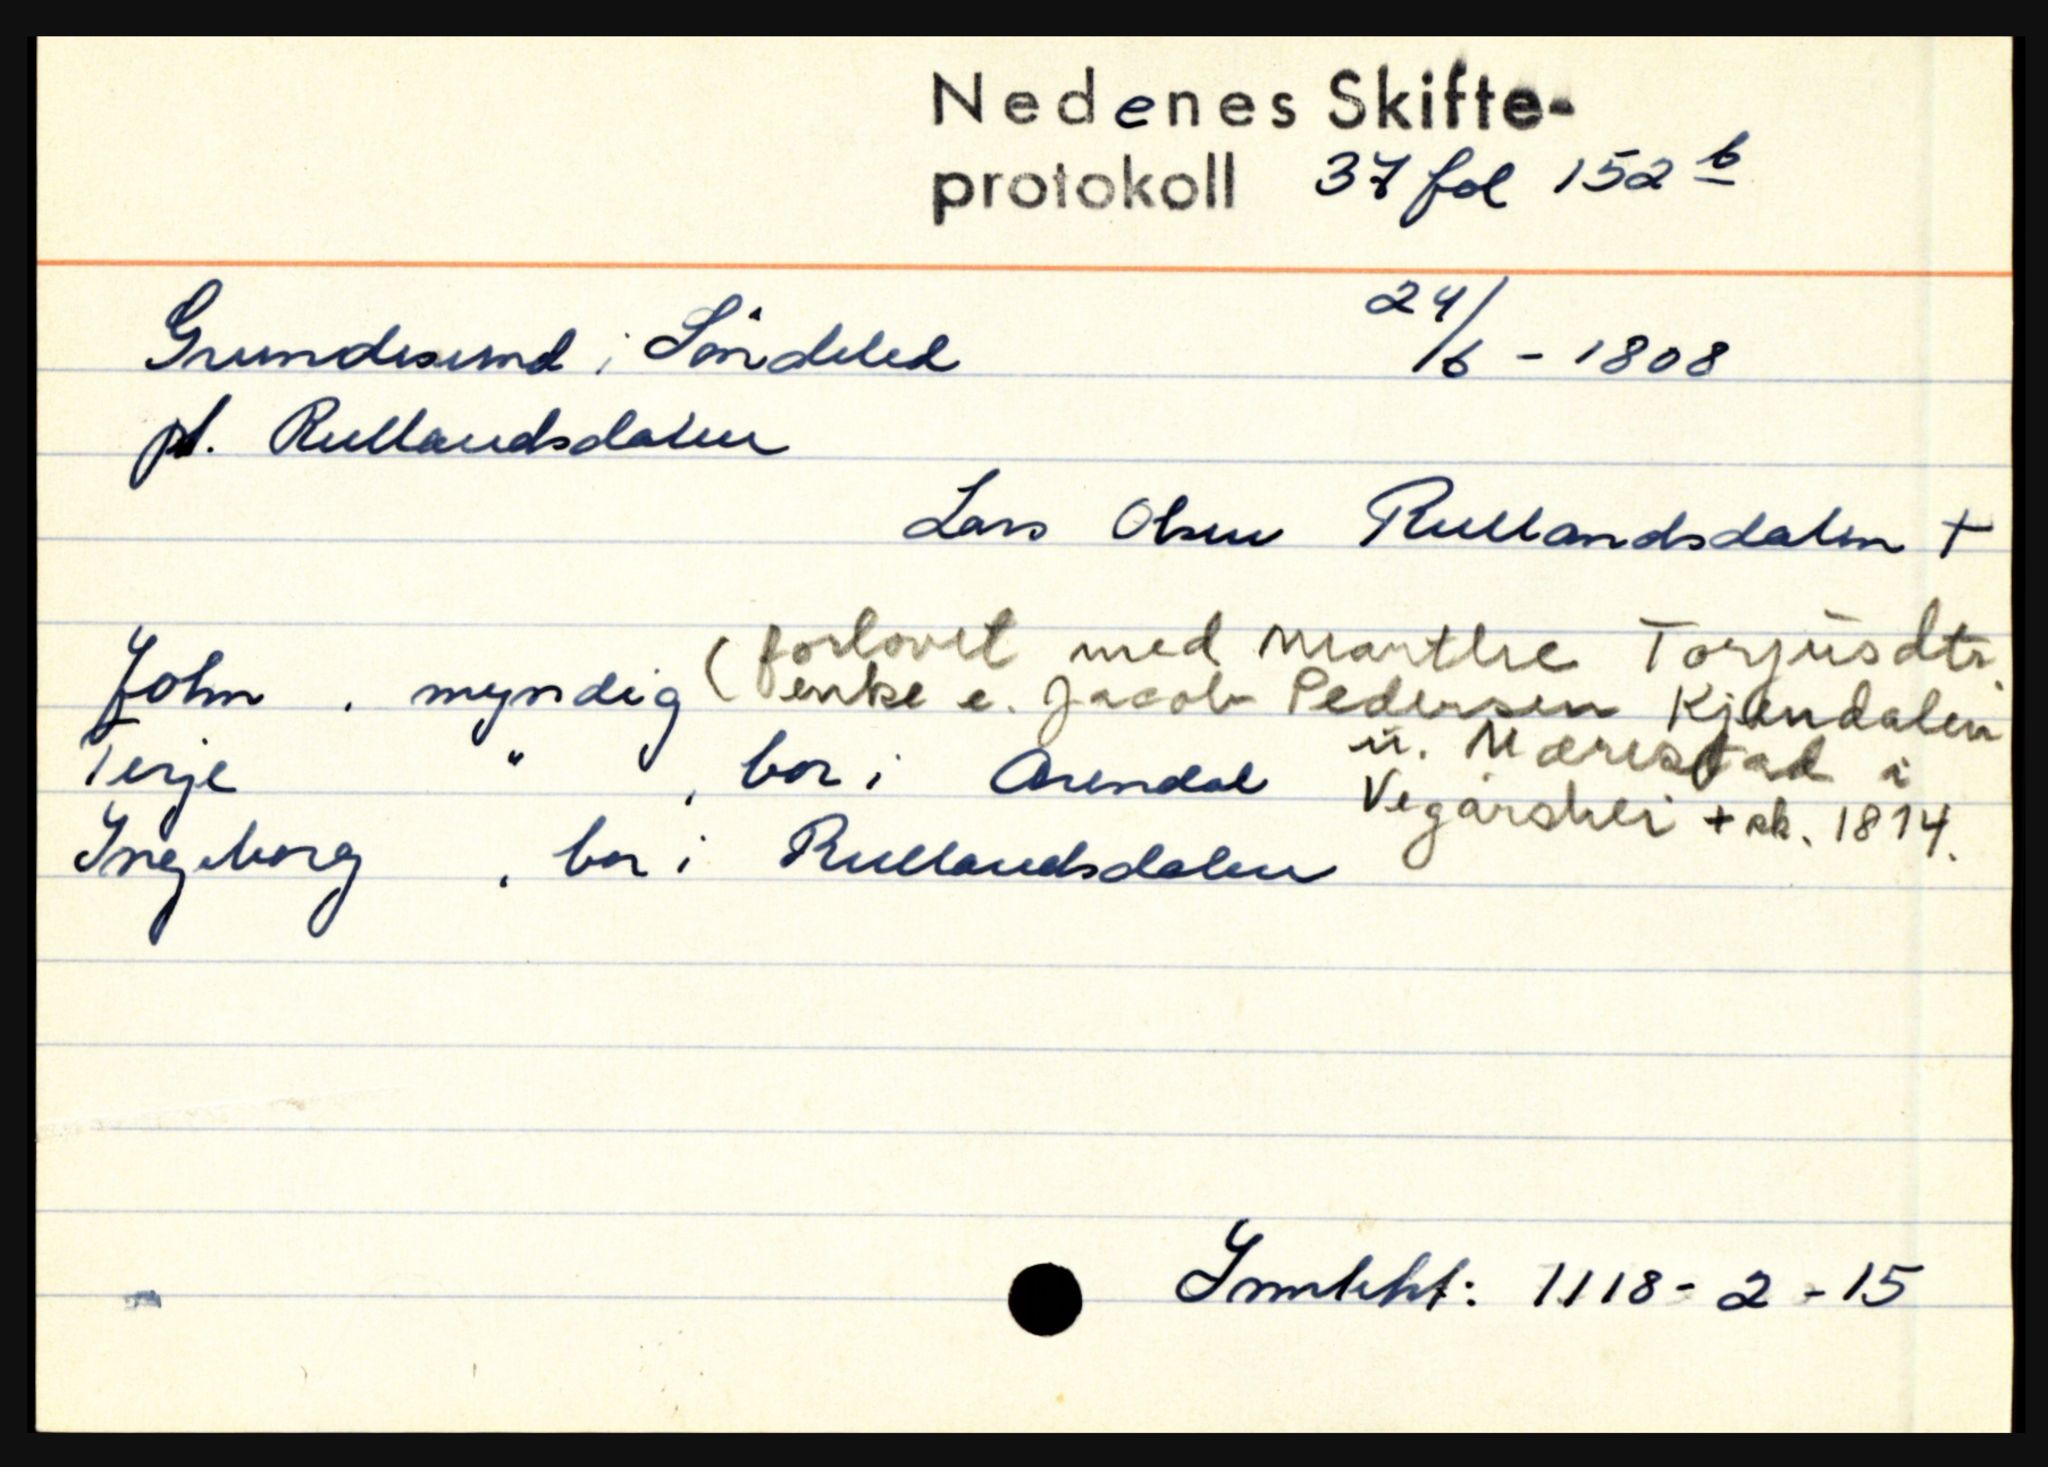 Nedenes Skifte-
protokoll 37 fol 152 b
Grundesund i Søndeled 24/6 - 1808
pl. Rullandsdalen
Lars Olsen Rullandsdalen +
(forlovet med Marthe Torjusdtr.
John , myndig enke e. Jacob Pedersen Kjendalen
u. Mærestad i
Terje " , bor i Arendal
Vegårshei + sk. 1814.
Ingeborg , bor i Rullandsdalen
Inntekt: 1118 - 2 - 15